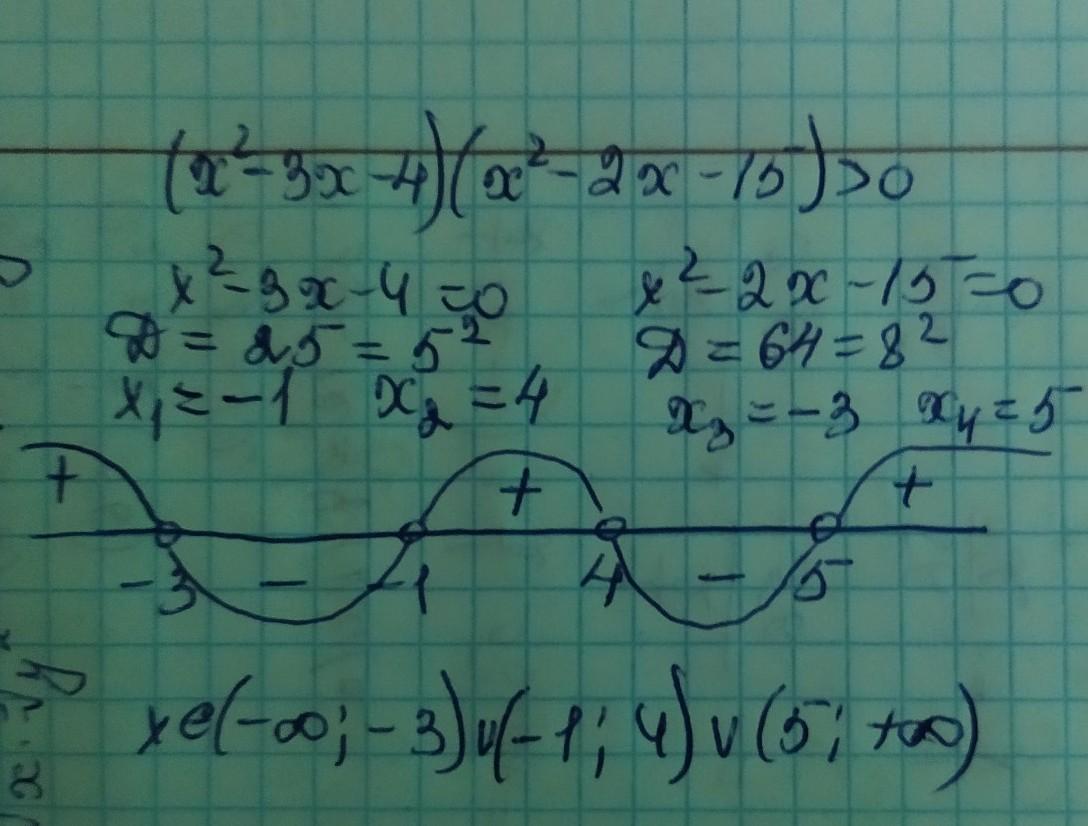 (x²-3x-4)(x²-2x-15)>0
x²-3x-4=0 x²-2x-15=0
D=25=5² D=64=8²
x₁=-1 x₂=4 x₃=-3 x₄=5
+ + +
-3 - -1 4 - 5
x∈(-∞;-3)∪(-1;4)∪(5;+∞)